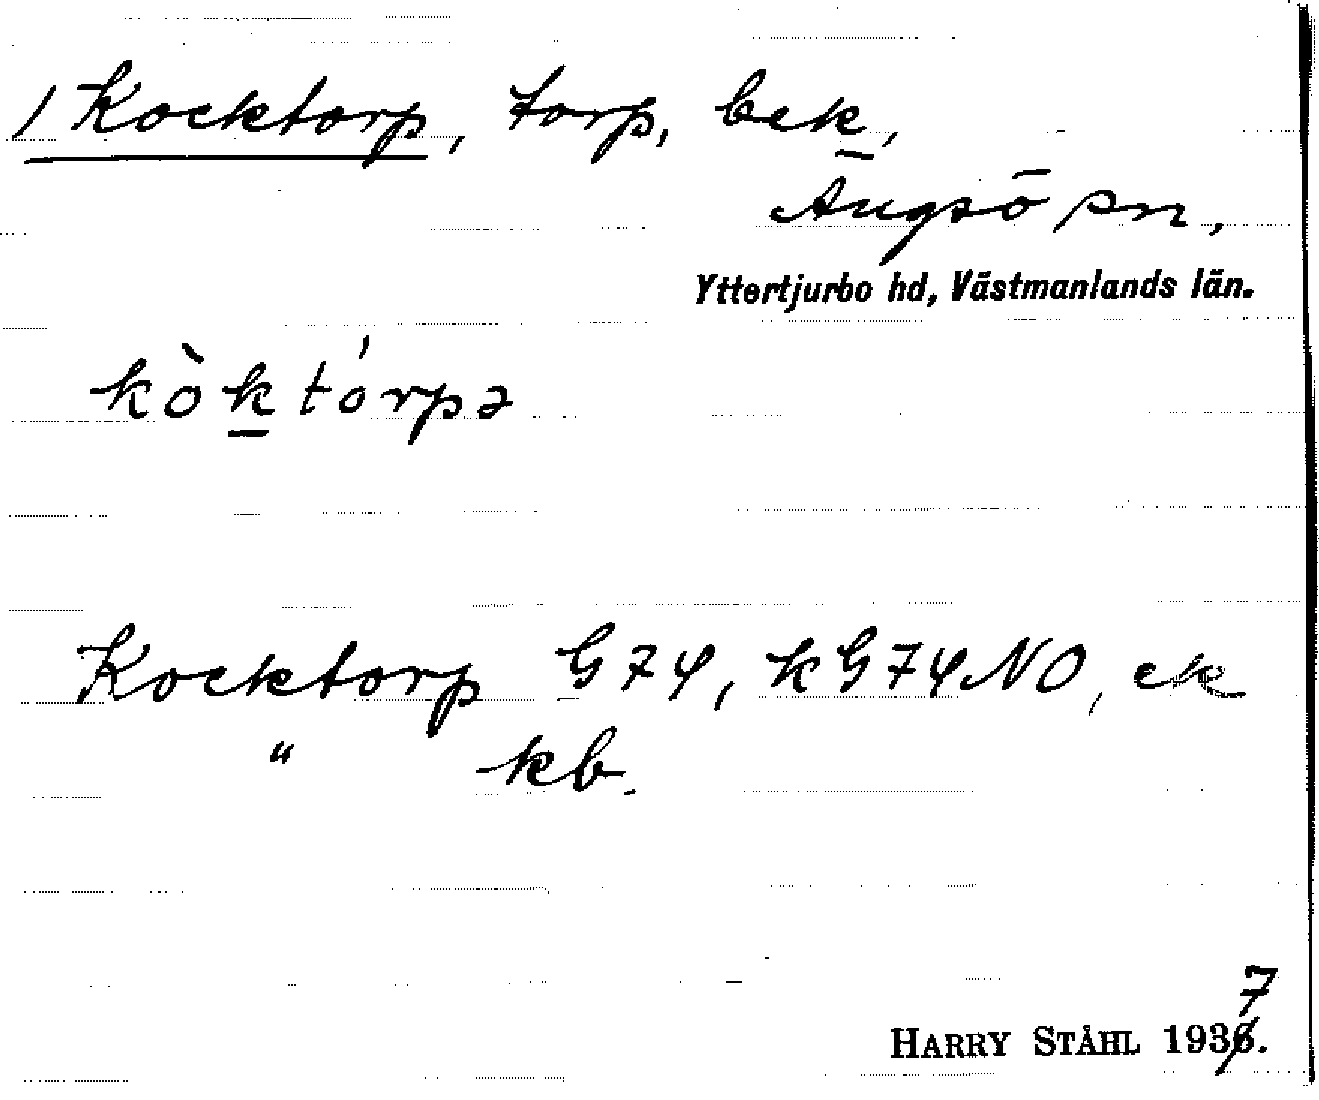 / Kocktorp, torp, bek,
Ängsö sn,
Yttertjurbo hd, Västmanlands län.
kòktórpə
Kocktorp G74, kG74NO, ek
" kb.
7
HARRY STÅHL 1936.